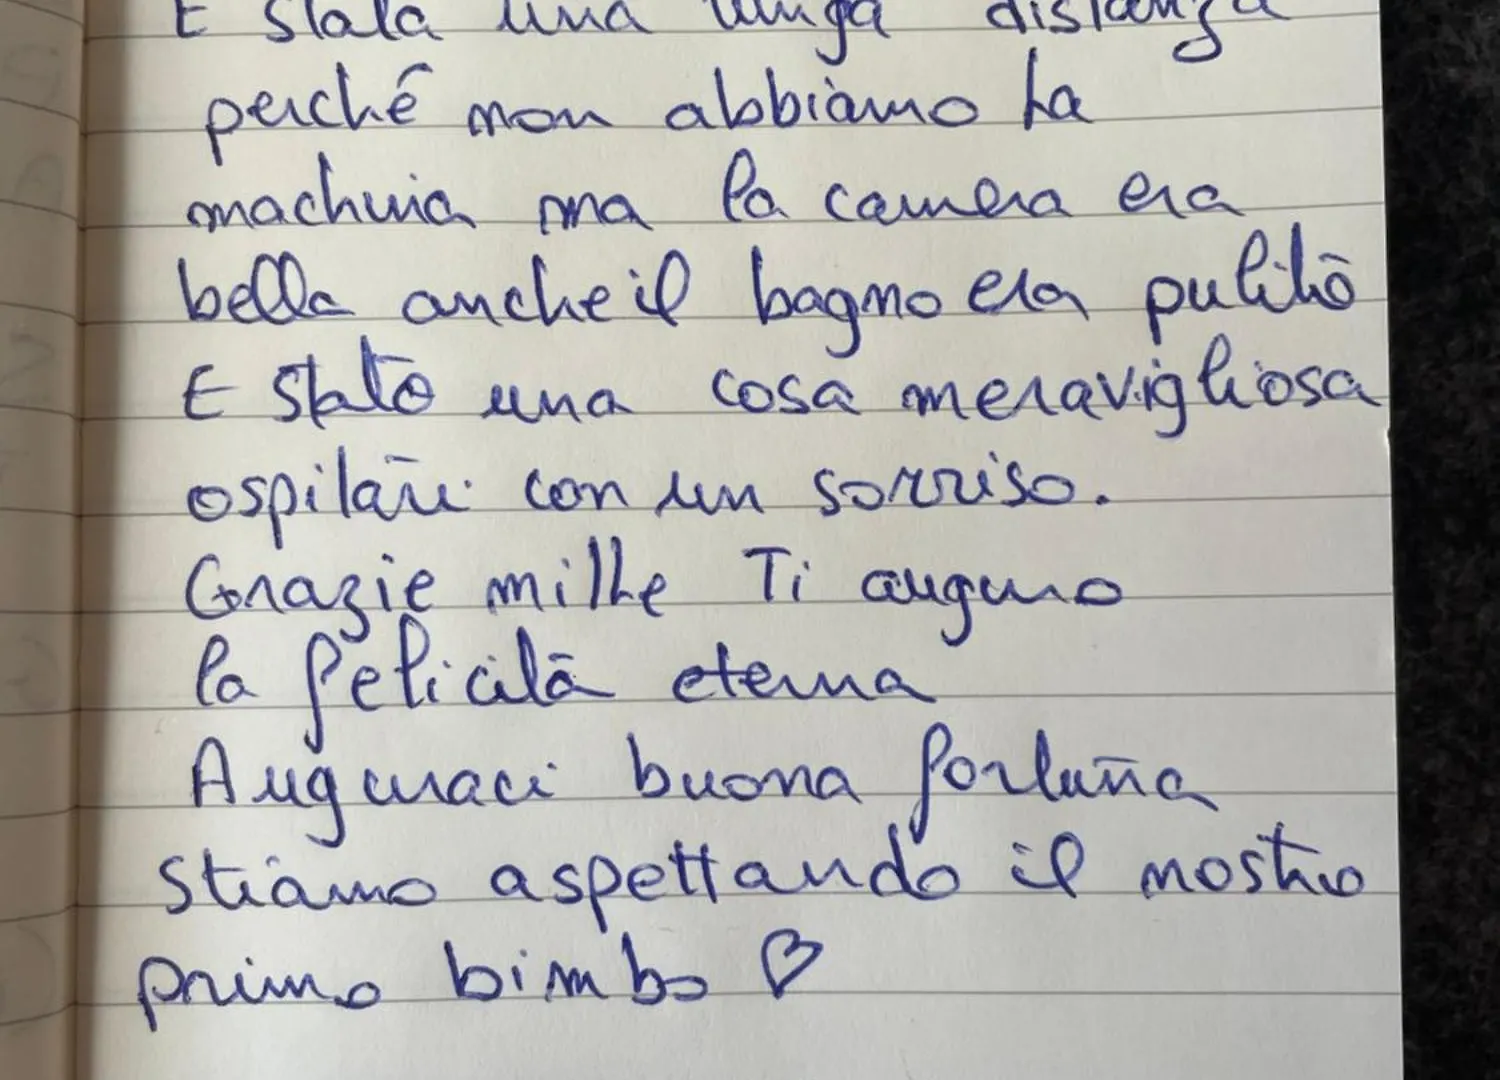 E stata una lunga distanza
perché non abbiamo la
machina ma la camera era
bella anche il bagno era pulito
E stato una cosa meravigliosa
ospitare con un sorriso.
Grazie mille Ti auguro
la felicità eterna
Auguraci buona fortuna
stiamo aspettando il nostro
primo bimbo ♡